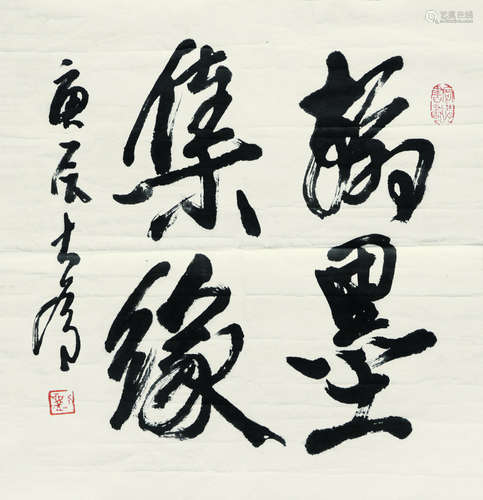 翰墨
集緣
庚辰大為